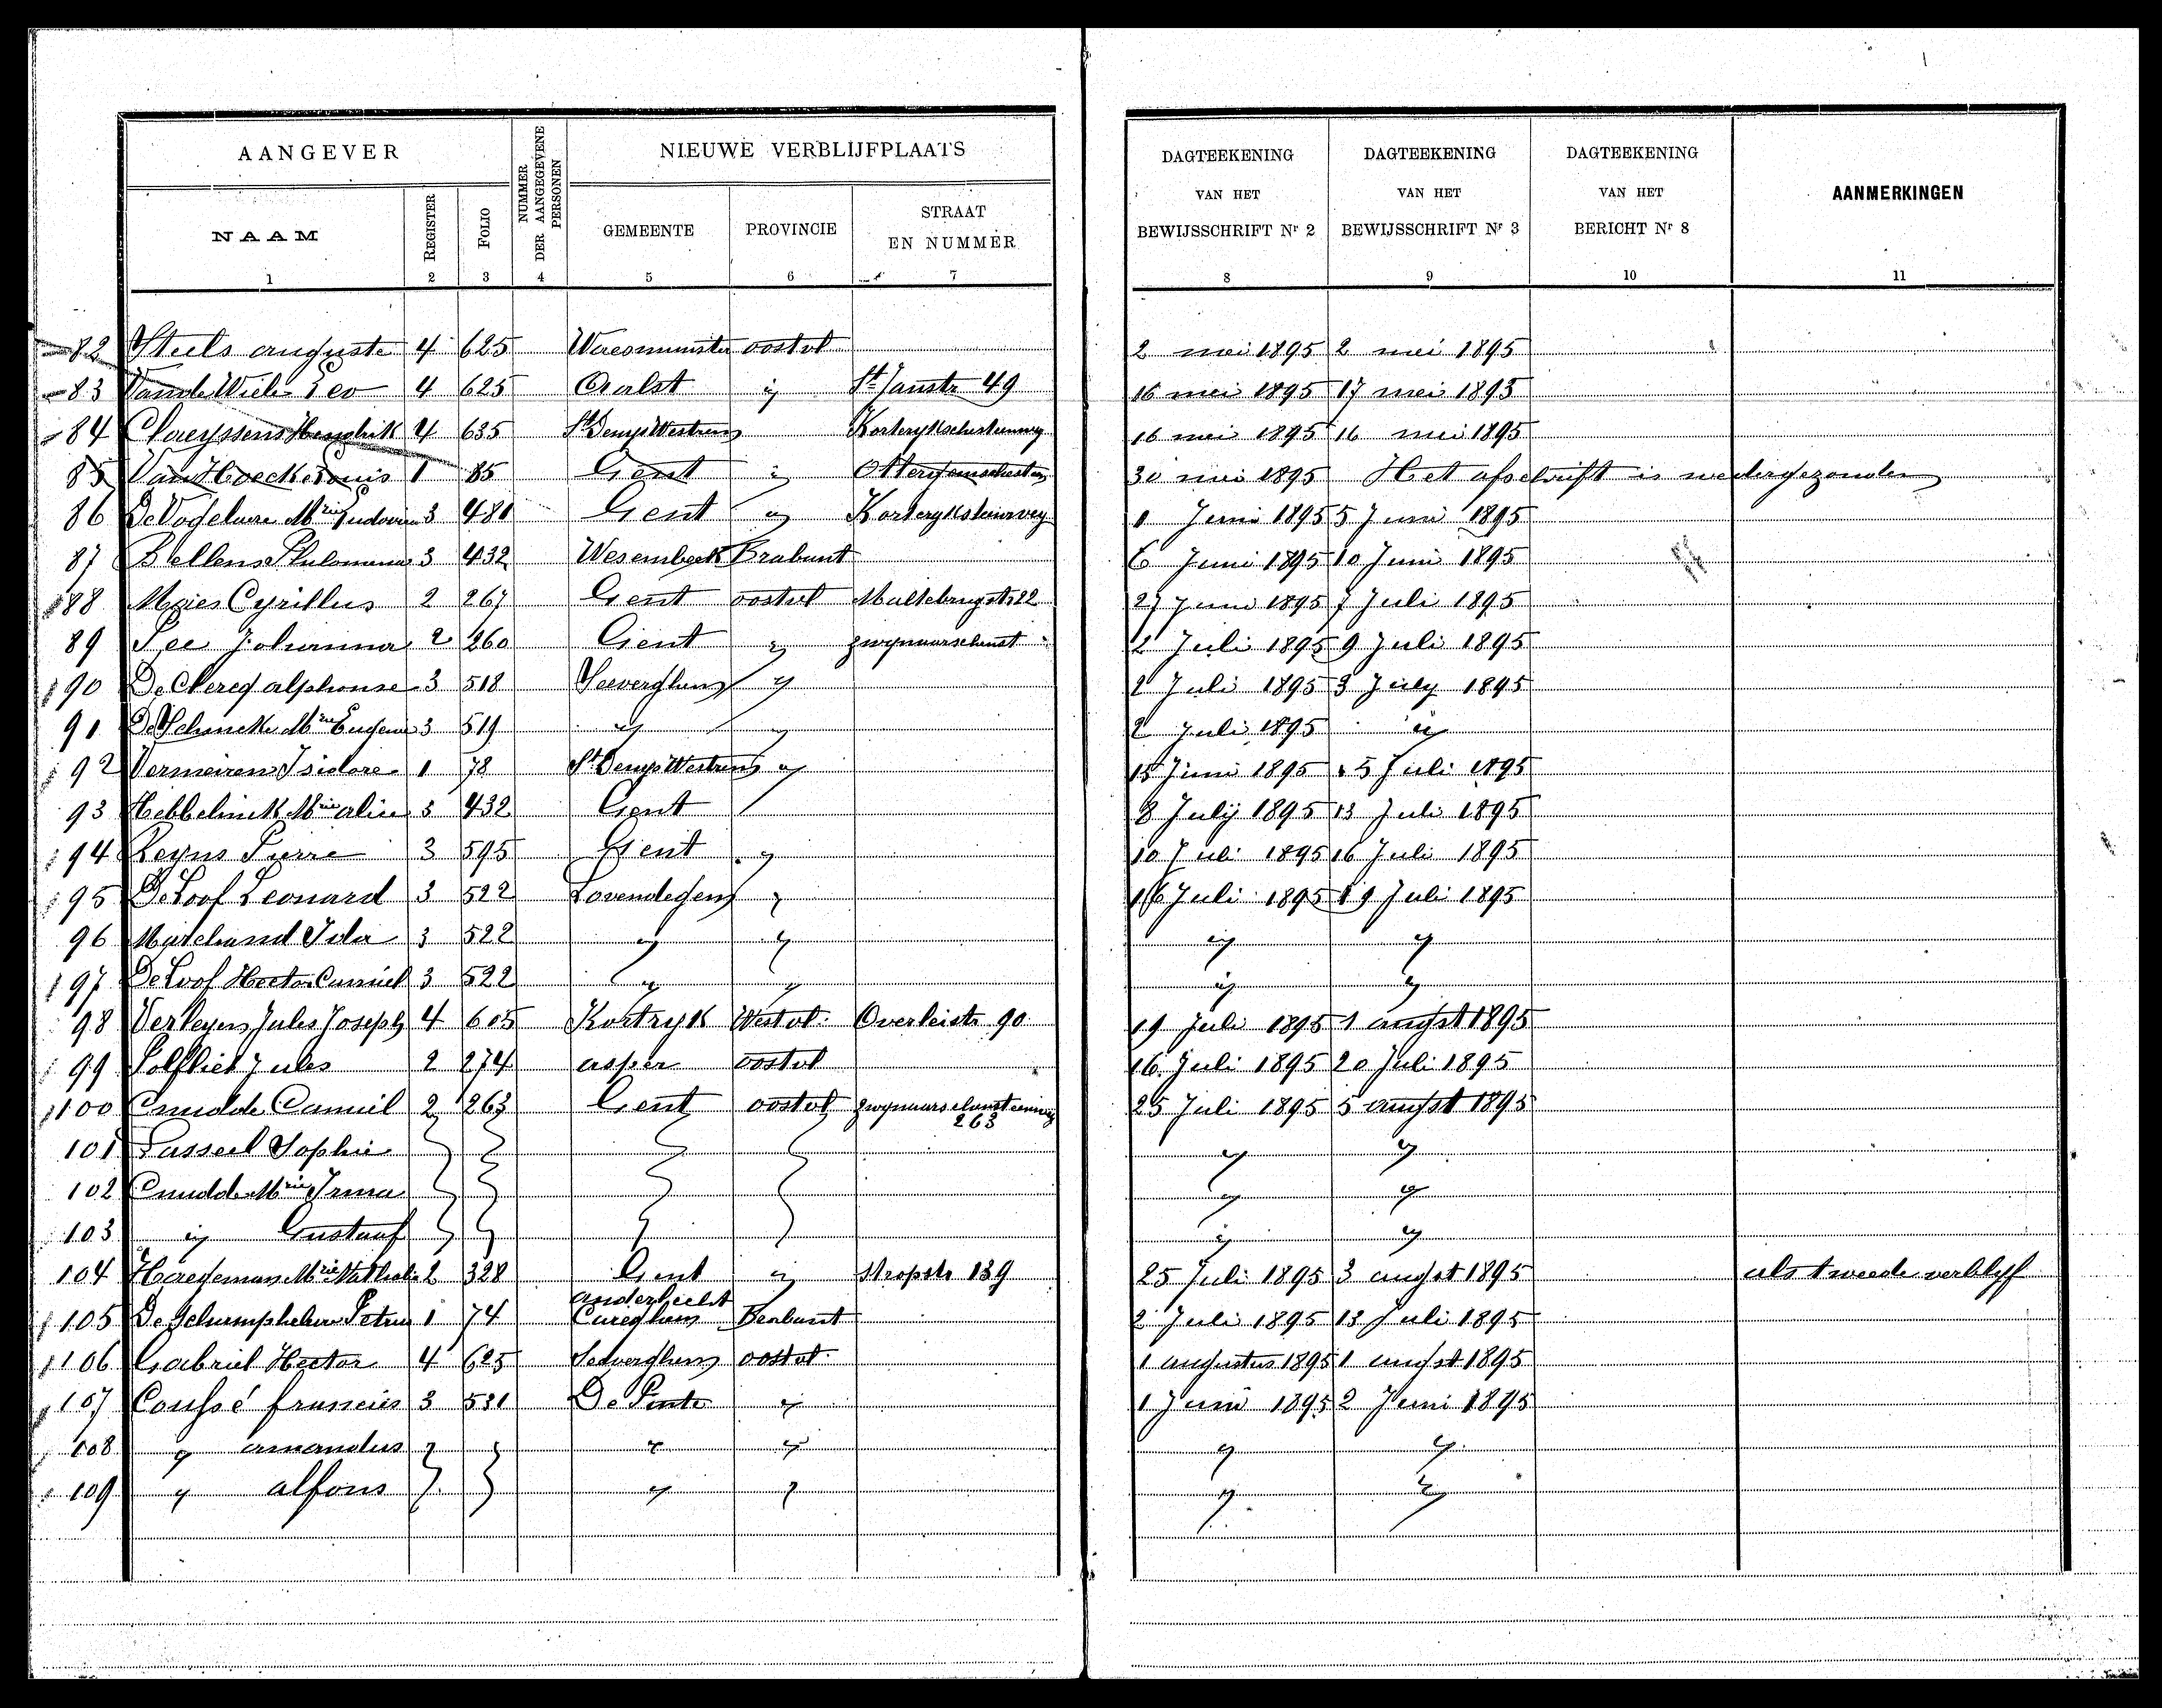 AANGEVER
NUMMER DER AANGEGEVENE PERSONEN
NIEUWE VERBLIJFPLAATS
DAGTEEKENING VAN HET BEWIJSSCHRIFT Nr 2
DAGTEEKENING VAN HET BEWIJSSCHRIFT Nr 3
DAGTEEKENING VAN HET BERICHT Nr 8
AANMERKINGEN
NAAM REGISTER FOLIO GEMEENTE PROVINCIE STRAAT EN NUMMER
1 2 3 4 5 6 7 8 9 10 11
82 Steels auguste 4 625 Waesmunster oostvl 2 mei 1895 2 mei 1895
83 Vande Wiele Leo 4 625 Aalst ij St Janstr 49 16 mei 1895 17 mei 1895
84 Claeyssens Hendrik 4 635 St Denys Westrem 16 mei 1895 16 mei 1895
85 Van Hoecke Louis 1 85 Gent ij 30 mei 1895 Het afschrift is wedergezonden
86 3 481 Gent ij 1 Juni 1895 5 Juni 1895
87 Bellens Philomena 3 432 Wesembeek Brabant 6 Juni 1895 10 Juni 1895
88 Cyrillus 2 267 Gent oostvl 27 Juni 1895 7 Juli 1895
89 Johanna 2 260 Gent ij 2 Juli 1895 9 Juli 1895
90 De Clercq alphonse 3 518 Seeverghem ij 2 Juli 1895 3 July 1895
91 3 519 ij ij 2 Juli 1895 ij
92 Vermeiren Isidore 1 78 St Denys Westrem ij 15 Juni 1895 5 Juli 1895
93 Hebbelinck Mrie alice 3 432 Gent 8 July 1895 13 Juli 1895
94 Reyns Pierre 3 595 Gent ij 10 Juli 1895 16 Juli 1895
95 De Loof Leonard 3 522 Lovendegem ij 16 Juli 1895 19 Juli 1895
96 Marchand Ida 3 522 ij ij ij ij
97 De Loof Hector Camiel 3 522 ij ij ij ij
98 Verleyen Jules Joseph 4 605 Kortryk Westvl. Overleistr 90 19 Juli 1895 1 augst 1895
99 Jules 2 274 asper oostvl 16 Juli 1895 20 Juli 1895
100 Cnudde Camiel 2 263 Gent oostvl 263 25 Juli 1895 5 augst 1895
101 Sophie ij ij
102 Cnudde Mrie Irma ij ij
103 ij Gustaaf ij ij
104 Haegeman Mrie 2 328 Gent ij Stropstr 139 25 Juli 1895 3 augst 1895 als tweede verblyf
anderhecht
105 Petrus 1 74 Cureghem Brabant 2 Juli 1895 13 Juli 1895
106 Gabriel Hector 4 625 Seeverghem oostvl 1 augustus 1895 1 augst 1895
107 Coussé francies 3 531 De Pinte ij 1 Juni 1895 2 Juni 1895
108 ij amandus ij ij ij ij
109 ij alfons ij ij ij ij